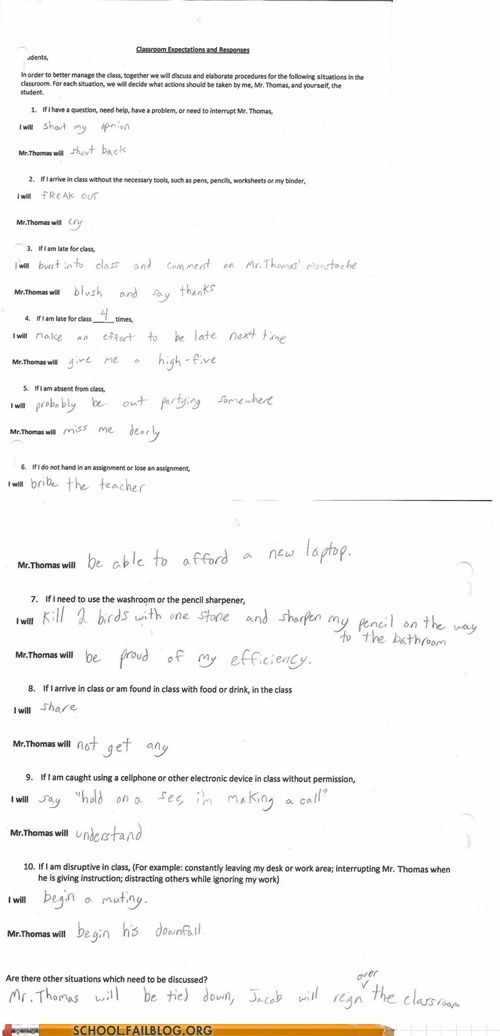 Classroom Expectations and Responses
udents,
In order to better manage the class, together we will discuss and elaborate procedures for the following situations in the
classroom. For each situation, we will decide what actions should be taken by me, Mr. Thomas, and yourself, the
student.
1. If I have a question, need help, have a problem, or need to interrupt Mr. Thomas,
I will shout my opinion
Mr.Thomas will shout back
2. If I arrive in class without the necessary tools, such as pens, pencils, worksheets or my binder,
I will FREAK OUT
Mr.Thomas will cry
3. If I am late for class,
I will burst into class and comment on Mr.Thomas' moustache
Mr.Thomas will blush and say thanks
4. If I am late for class 4 times,
I will make an effort to be late next time
Mr.Thomas will give me a high-five
5. If I am absent from class,
I will probably be out partying somewhere
Mr.Thomas will miss me dearly
6. If I do not hand in an assignment or lose an assignment,
I will bribe the teacher
Mr.Thomas will be able to afford a new laptop.
7. If I need to use the washroom or the pencil sharpener,
I will Kill 2 birds with one stone and sharpen my pencil on the way
to the bathroom
Mr.Thomas will be proud of my efficiency.
8. If I arrive in class or am found in class with food or drink, in the class
I will share
Mr.Thomas will not get any
9. If I am caught using a cellphone or other electronic device in class without permission,
I will say "hold on a sec, i'm making a call"
Mr.Thomas will understand
10. If I am disruptive in class, (For example: constantly leaving my desk or work area; interrupting Mr. Thomas when
he is giving instruction; distracting others while ignoring my work)
I will begin a mutiny.
Mr.Thomas will begin his downfall
Are there other situations which need to be discussed?
Mr. Thomas will be tied down, Jacob will reign over the classroom
SCHOOL.FAILBLOG.ORG